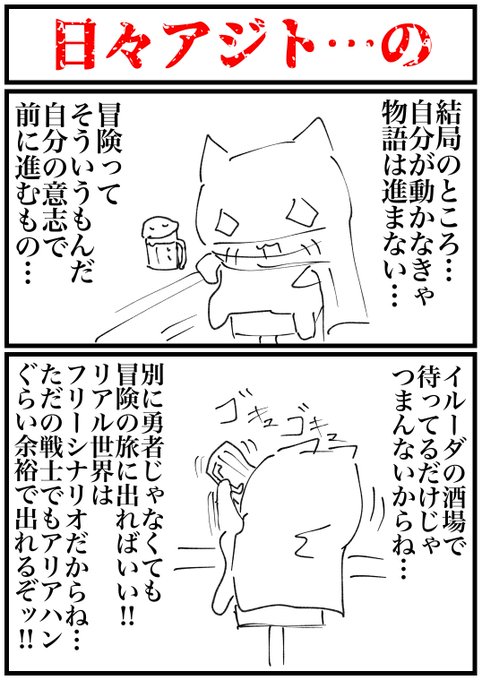 日々アジト…の
結局のところ…
自分が動かなきゃ
物語は進まない…
冒険って
そういうもんだ
自分の意志で
前に進むもの…
イルーダの酒場で
待ってるだけじゃ
つまんないからね…
ゴキュ
ゴキュ
別に勇者じゃなくても
冒険の旅に出ればいい!!
リアル世界は
フリーシナリオだからね…
ただの戦士でもアリアハン
ぐらい余裕で出れるぞッ!!